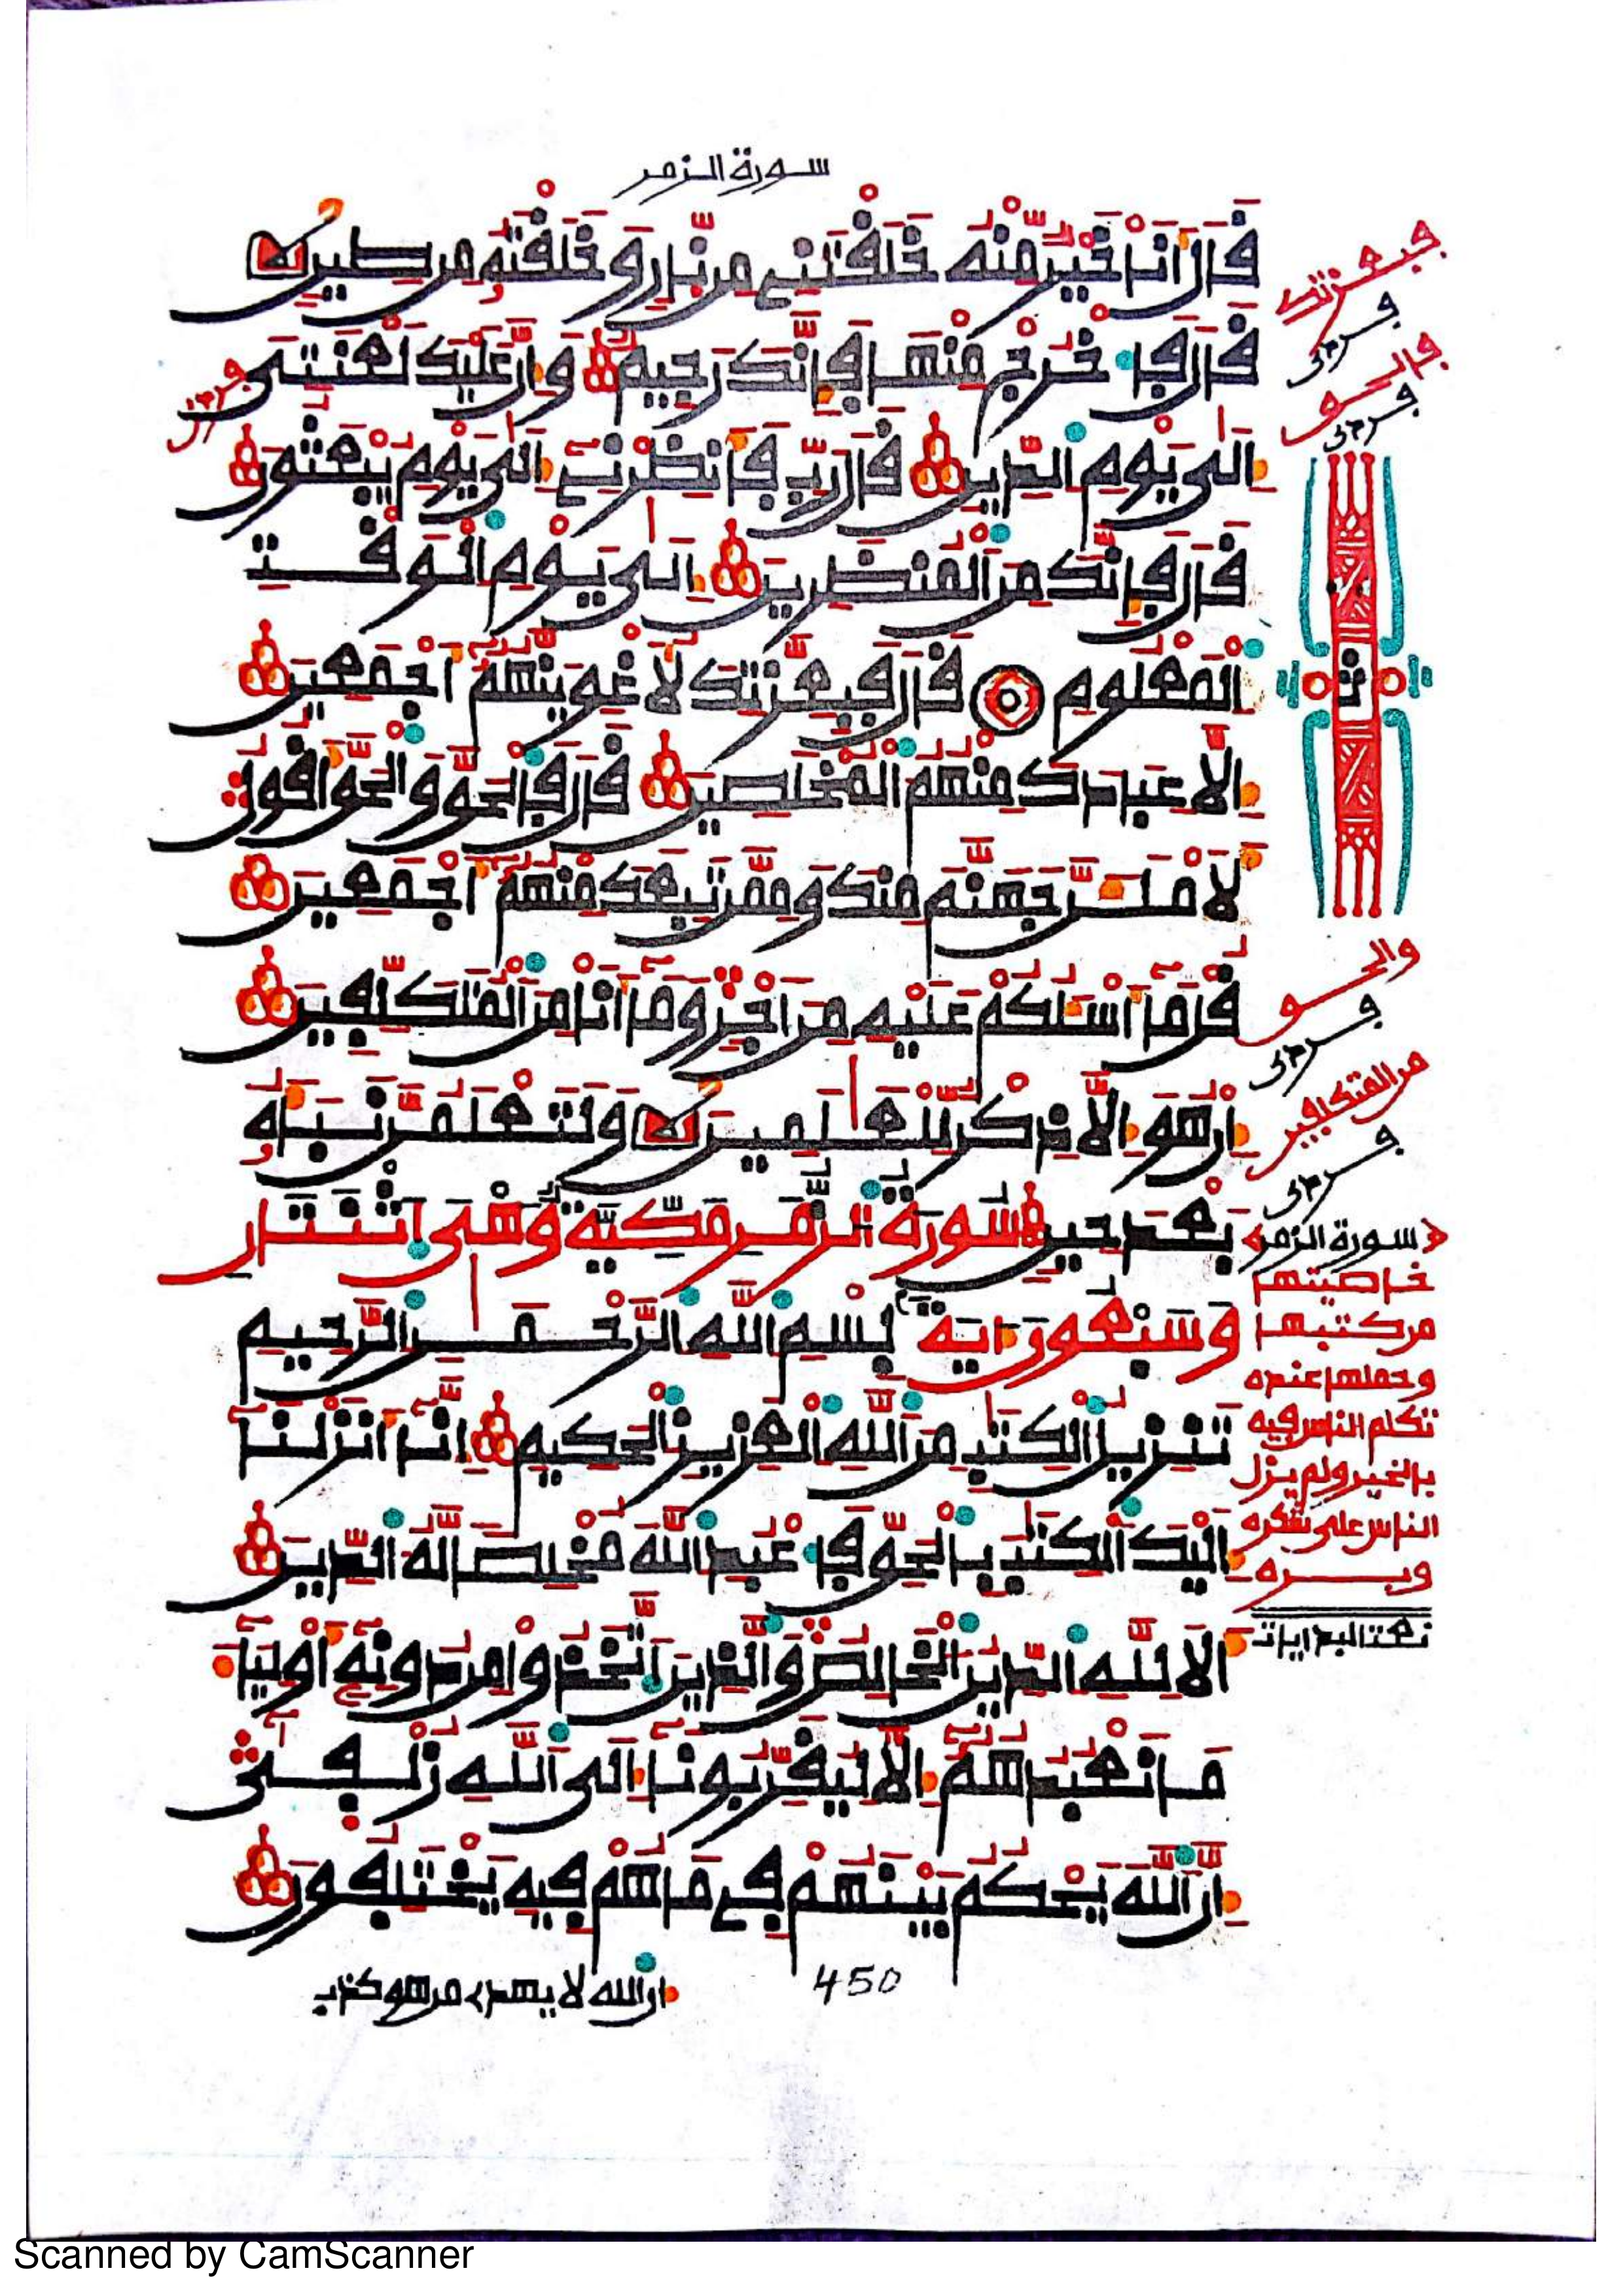 سورة الزمر
قَالَ أَنَا خَيْرٌ مِّنْهُ خَلَقْتَنِي مِن نَّارٍ وَخَلَقْتَهُ مِن طِينٍ
قَالَ فَاخْرُجْ مِنْهَا فَإِنَّكَ رَجِيمٌ وَإِنَّ عَلَيْكَ لَعْنَتِي
إِلَى يَوْمِ الدِّينِ قَالَ رَبِّ فَأَنظِرْنِي إِلَى يَوْمِ يُبْعَثُونَ
قَالَ فَإِنَّكَ مِنَ الْمُنظَرِينَ إِلَى يَوْمِ الْوَقْتِ
الْمَعْلُومِ قَالَ فَبِعِزَّتِكَ لَأُغْوِيَنَّهُمْ أَجْمَعِينَ
إِلَّا عِبَادَكَ مِنْهُمُ الْمُخْلَصِينَ قَالَ فَالْحَقَّ وَالْحَقَّ أَقُولُ
لَأَمْلَأَنَّ جَهَنَّمَ مِنكَ وَمِمَّن تَبِعَكَ مِنْهُمْ أَجْمَعِينَ
قُلْ مَا أَسْـَٔلُكُمْ عَلَيْهِ مِنْ أَجْرٍ وَمَا أَنَا مِنَ الْمُتَكَلِّفِينَ
إِنْ هُوَ إِلَّا ذِكْرٌ لِّلْعَٰلَمِينَ وَلَتَعْلَمُنَّ نَبَأَهُ
بَعْدَ حِينٍ سُورَةُ الزُّمَرِ مَكِّيَّةٌ وَهْيَ اثْنَتَانِ
وَسَبْعُونَ ءَايَةً بِسْمِ اللَّهِ الرَّحْمَٰنِ الرَّحِيمِ
تَنزِيلُ الْكِتَٰبِ مِنَ اللَّهِ الْعَزِيزِ الْحَكِيمِ إِنَّا أَنزَلْنَا
إِلَيْكَ الْكِتَٰبَ بِالْحَقِّ فَاعْبُدِ اللَّهَ مُخْلِصًا لَّهُ الدِّينَ
أَلَا لِلَّهِ الدِّينُ الْخَالِصُ وَالَّذِينَ اتَّخَذُوا مِن دُونِهِ أَوْلِيَاءَ
مَا نَعْبُدُهُمْ إِلَّا لِيُقَرِّبُونَا إِلَى اللَّهِ زُلْفَى
إِنَّ اللَّهَ يَحْكُمُ بَيْنَهُمْ فِي مَا هُمْ فِيهِ يَخْتَلِفُونَ
450
إن الله لا يهدي من هو كذب
فبعزتك
قرئ
قرئ
ثمن
والحق
قرئ
من المتكلفين
قرئ
سورة الزمر
خاصيتها
من كتبها
وحملها عنده
تكلم الناس فيه
بالخير ولم يزل
الناس على شكره
وبره
Scanned by CamScanner